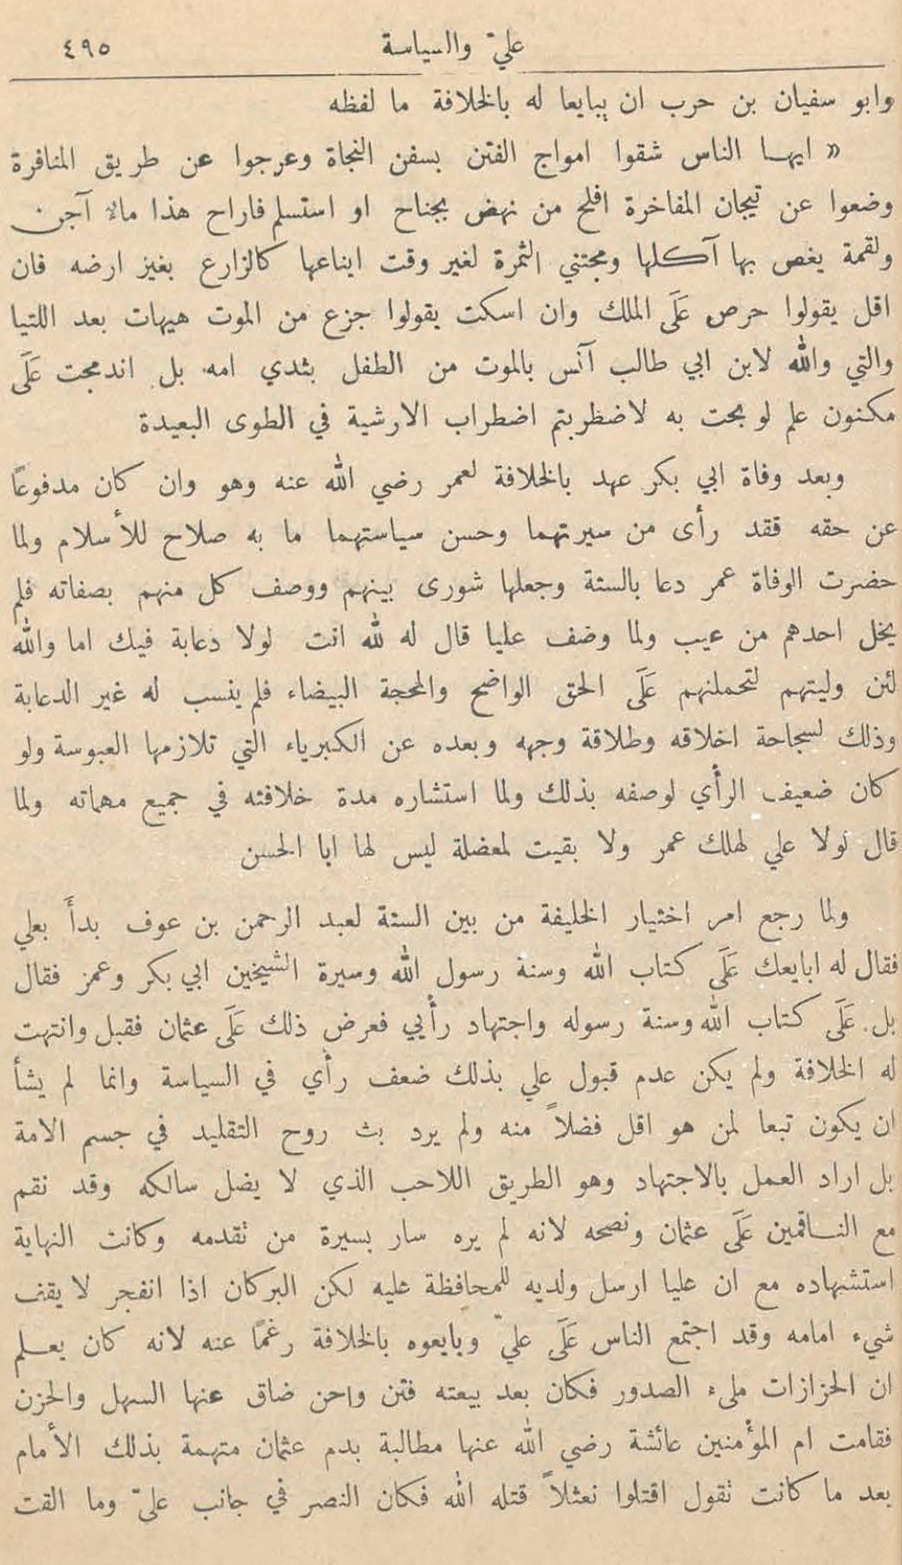 عليّ والسياسة ٤٩٥
وابو سفيان بن حرب ان يبايعا له بالخلافة ما لفظه
« ايهـا الناس شقوا امواج الفتن بسفن النجاة وعرجوا عن طريق المنافرة
وضعوا عن تيجان المفاخرة افلح من نهض بجناح او استسلم فاراح هذا مالا آجن
ولقمة يغص بها آكلها ومجتني الثمرة لغير وقت ايناعها كالزارع بغيز ارضه فان
اقل يقولوا حرص عَلَى الملك وان اسكت يقولوا جزع من الموت هيهات بعد اللتيا
والتي والله لابن ابي طالب آنس بالموت من الطفل بثدي امه بل اندمجت عَلَى
مكنون علم لو بحت به لاضظربتم اضطراب الارشية في الطوى البعيدة
وبعد وفاة ابي بكر عهد بالخلافة لعمر رضي الله عنه وهو وان كان مدفوعاً
عن حقه فقد رأى من سيرتهما وحسن سياستهما ما به صلاح للأسلام ولما
حضرت الوفاة عمر دعا بالستة وجعلها شورى بينهم ووصف كل منهم بصفاته فلم
يخل احدهم من عيب ولما وضف عليا قال له لله انت لولا دعابة فيك اما والله
لئن وليتهم لتحملنهم عَلَى الحق الواضح والمحجة البيضاء فلم ينسب له غير الدعابة
وذلك لسجاحة اخلاقه وطلاقة وجهه وبعده عن الكبرياء التي تلازمها العبوسة ولو
كان ضعيف الرأي لوصفه بذلك ولما استشاره مدة خلافته في جميع مهماته ولما
قال لولا علي لهلك عمر ولا بقيت لمعضلة ليس لها ابا الحسن
ولما رجع امر اختيار الخليفة من بين الستة لعبد الرحمن بن عوف بدأَ بعلي
فقال له ابايعك عَلَى كتاب الله وسنة رسول الله وسيرة الشيخين ابي بكر وعمز فقال
بل عَلَى كتاب الله وسنة رسوله واجتهاد رأيي فعرض ذلك عَلَى عثمان فقبل وانتهت
له الخلافة ولم يكن عدم قبول علي بذلك ضعف رأي في السياسة وانما لم يشأ
ان يكون تبعا لمن هو اقل فضلاً منه ولم يرد بث روح التقليد في جسم الامة
بل اراد العمل بالاجتهاد وهو الطريق اللاحب الذي لا يضل سالكه وقد نقم
مع النـاقمين عَلَى عثمان ونصحه لانه لم يره سار بسيرة من تقدمه وكانت النهاية
استشهاده مع ان عليا ارسل ولديه للمحافظة عليه لكن البركان اذا انفجر لا يقف
شيء امامه وقد اجتمع الناس عَلَى عليّ وبايعوه بالخلافة رغماً عنه لانه كان يعـلم
ان الحزازات ملء الصدور فكان بعد بيعته فتن واحن ضاق عنها السهل والحزن
فقامت ام المؤمنين عائشة رضي الله عنها مطالبة بدم عثمان متهمة بذلك الأمام
بعد ما كانت تقول اقتلوا نعثلاً قتله الله فكان النصر في جانب عليّ وما القت